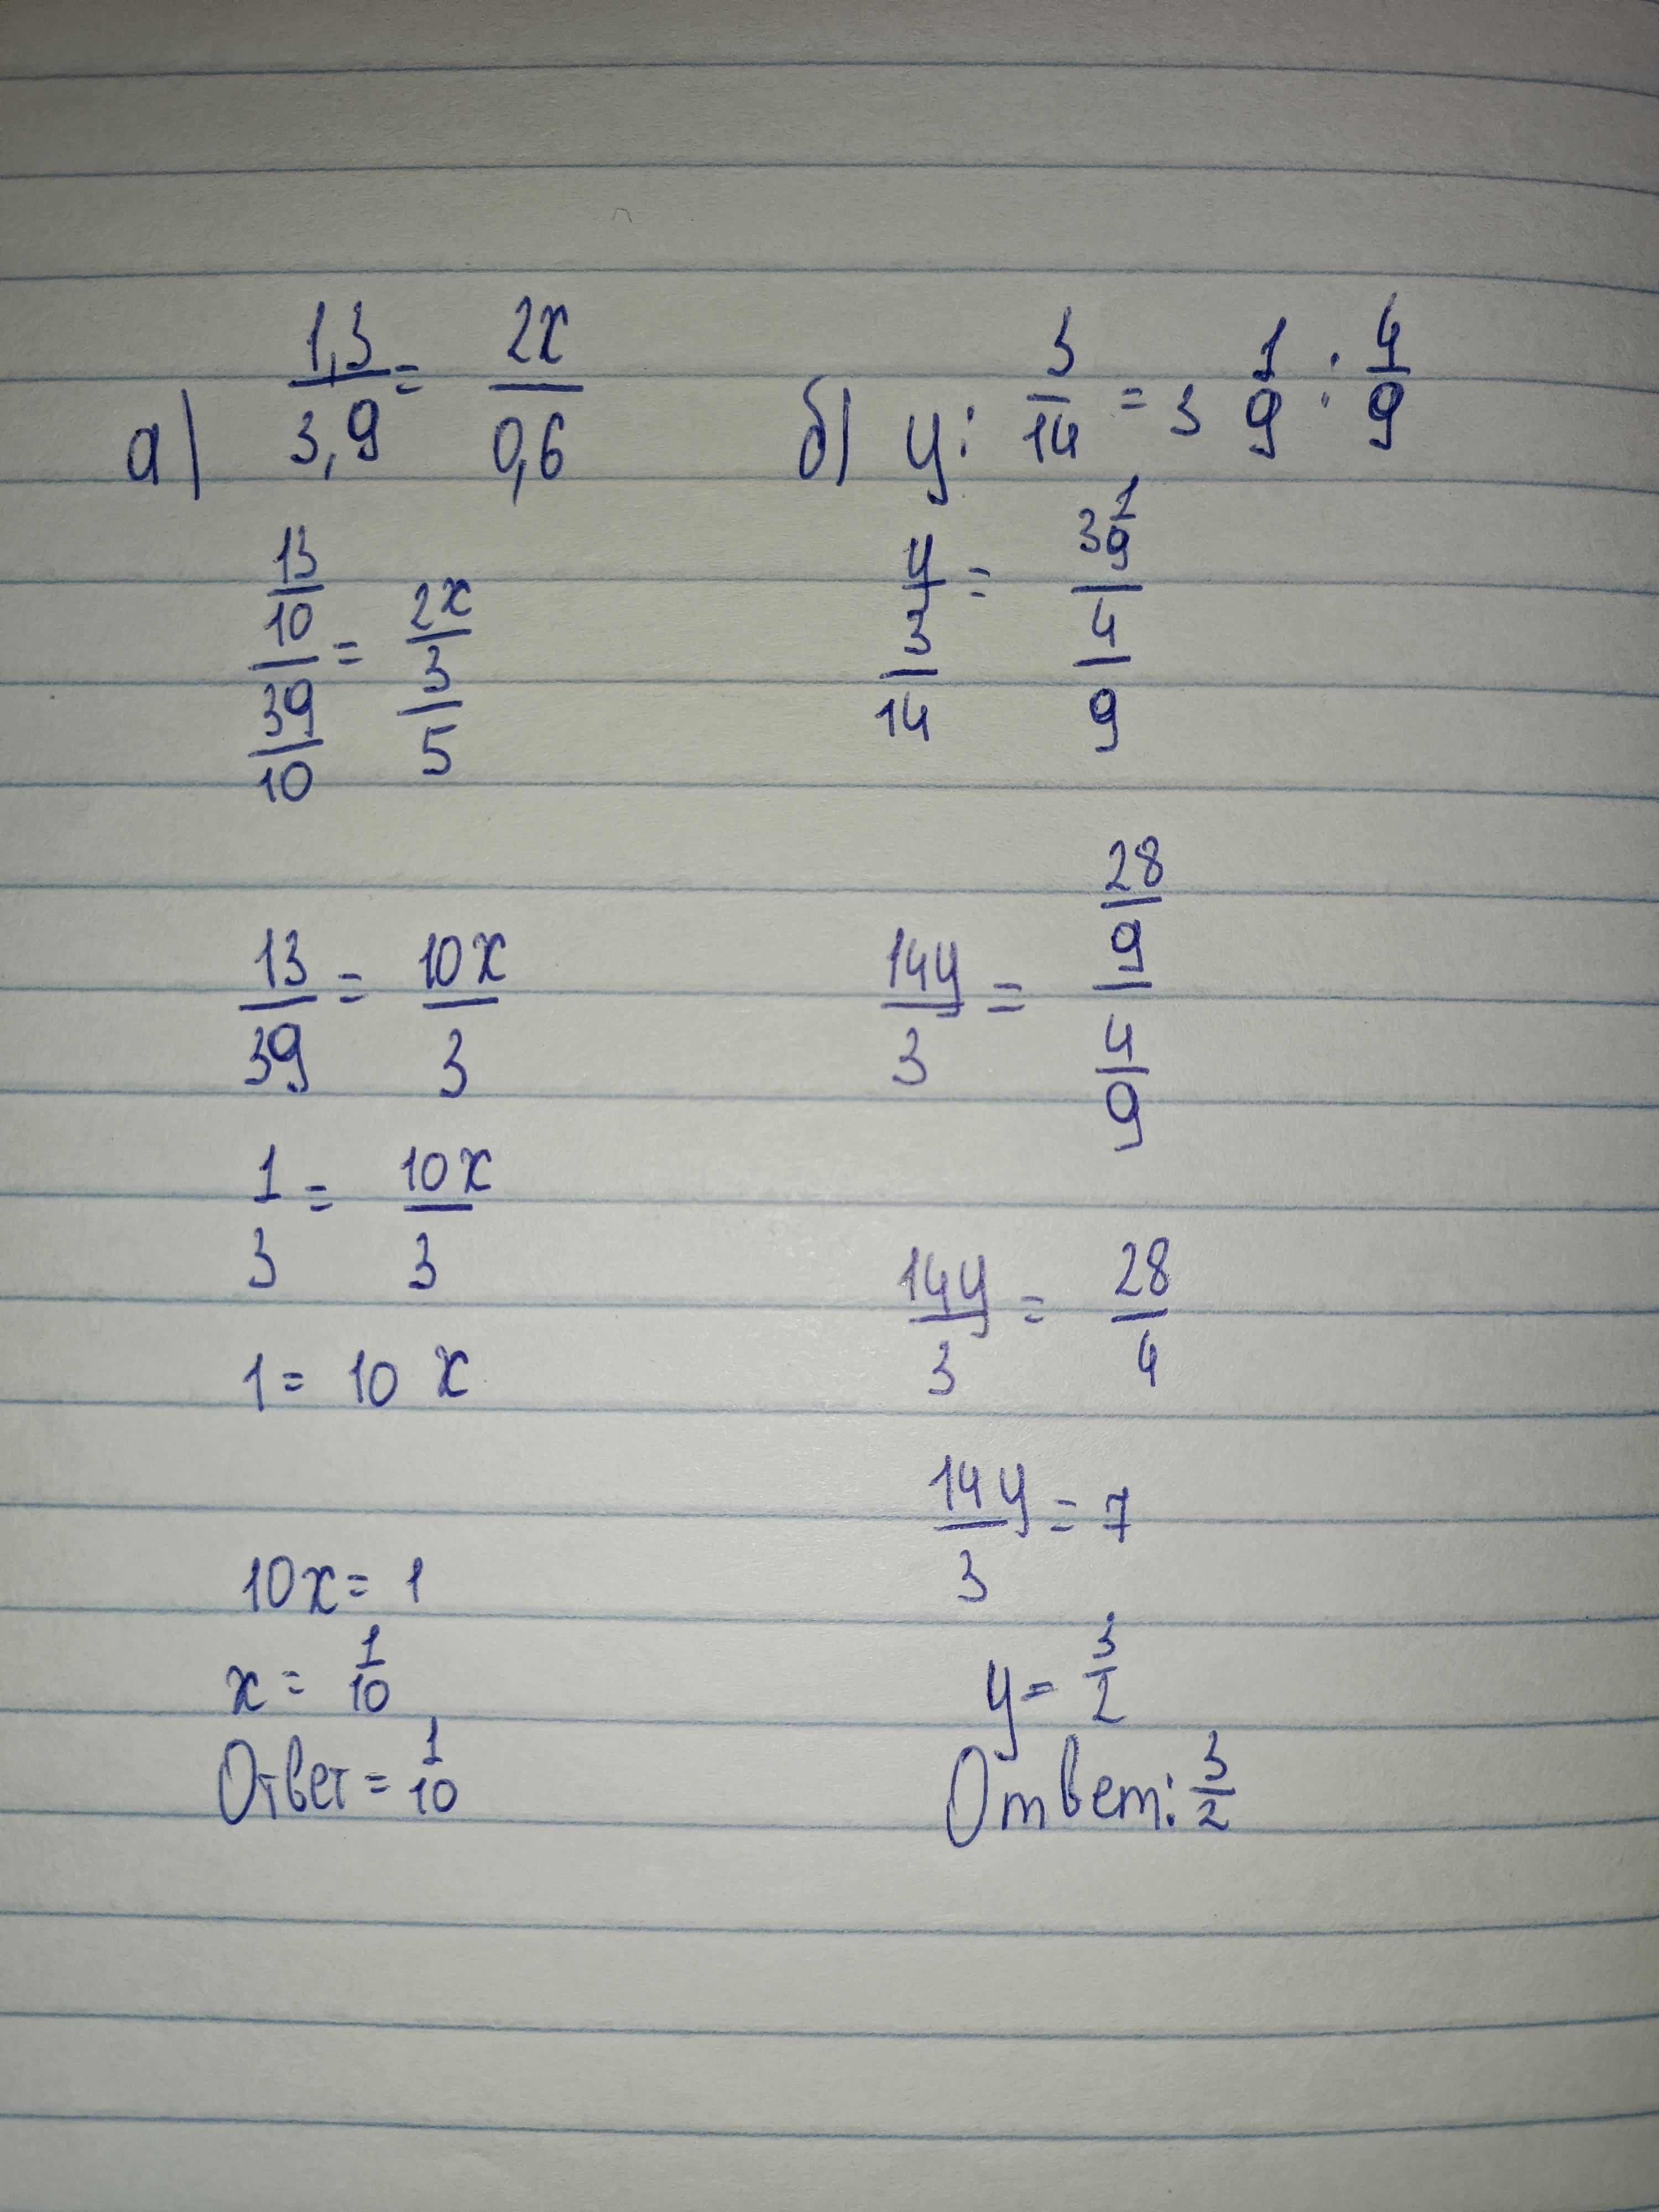 а) 1,3/3,9 = 2x/0,6
13/10 / 39/10 = 2x / 3/5
13/39 = 10x/3
1/3 = 10x/3
1 = 10 x
10x = 1
x = 1/10
Ответ = 1/10
б) y : 3/14 = 3 1/9 : 4/9
y / 3/14 = 3 1/9 / 4/9
14y/3 = 28/9 / 4/9
14y/3 = 28/4
14y/3 = 7
y = 3/2
Ответ: 3/2